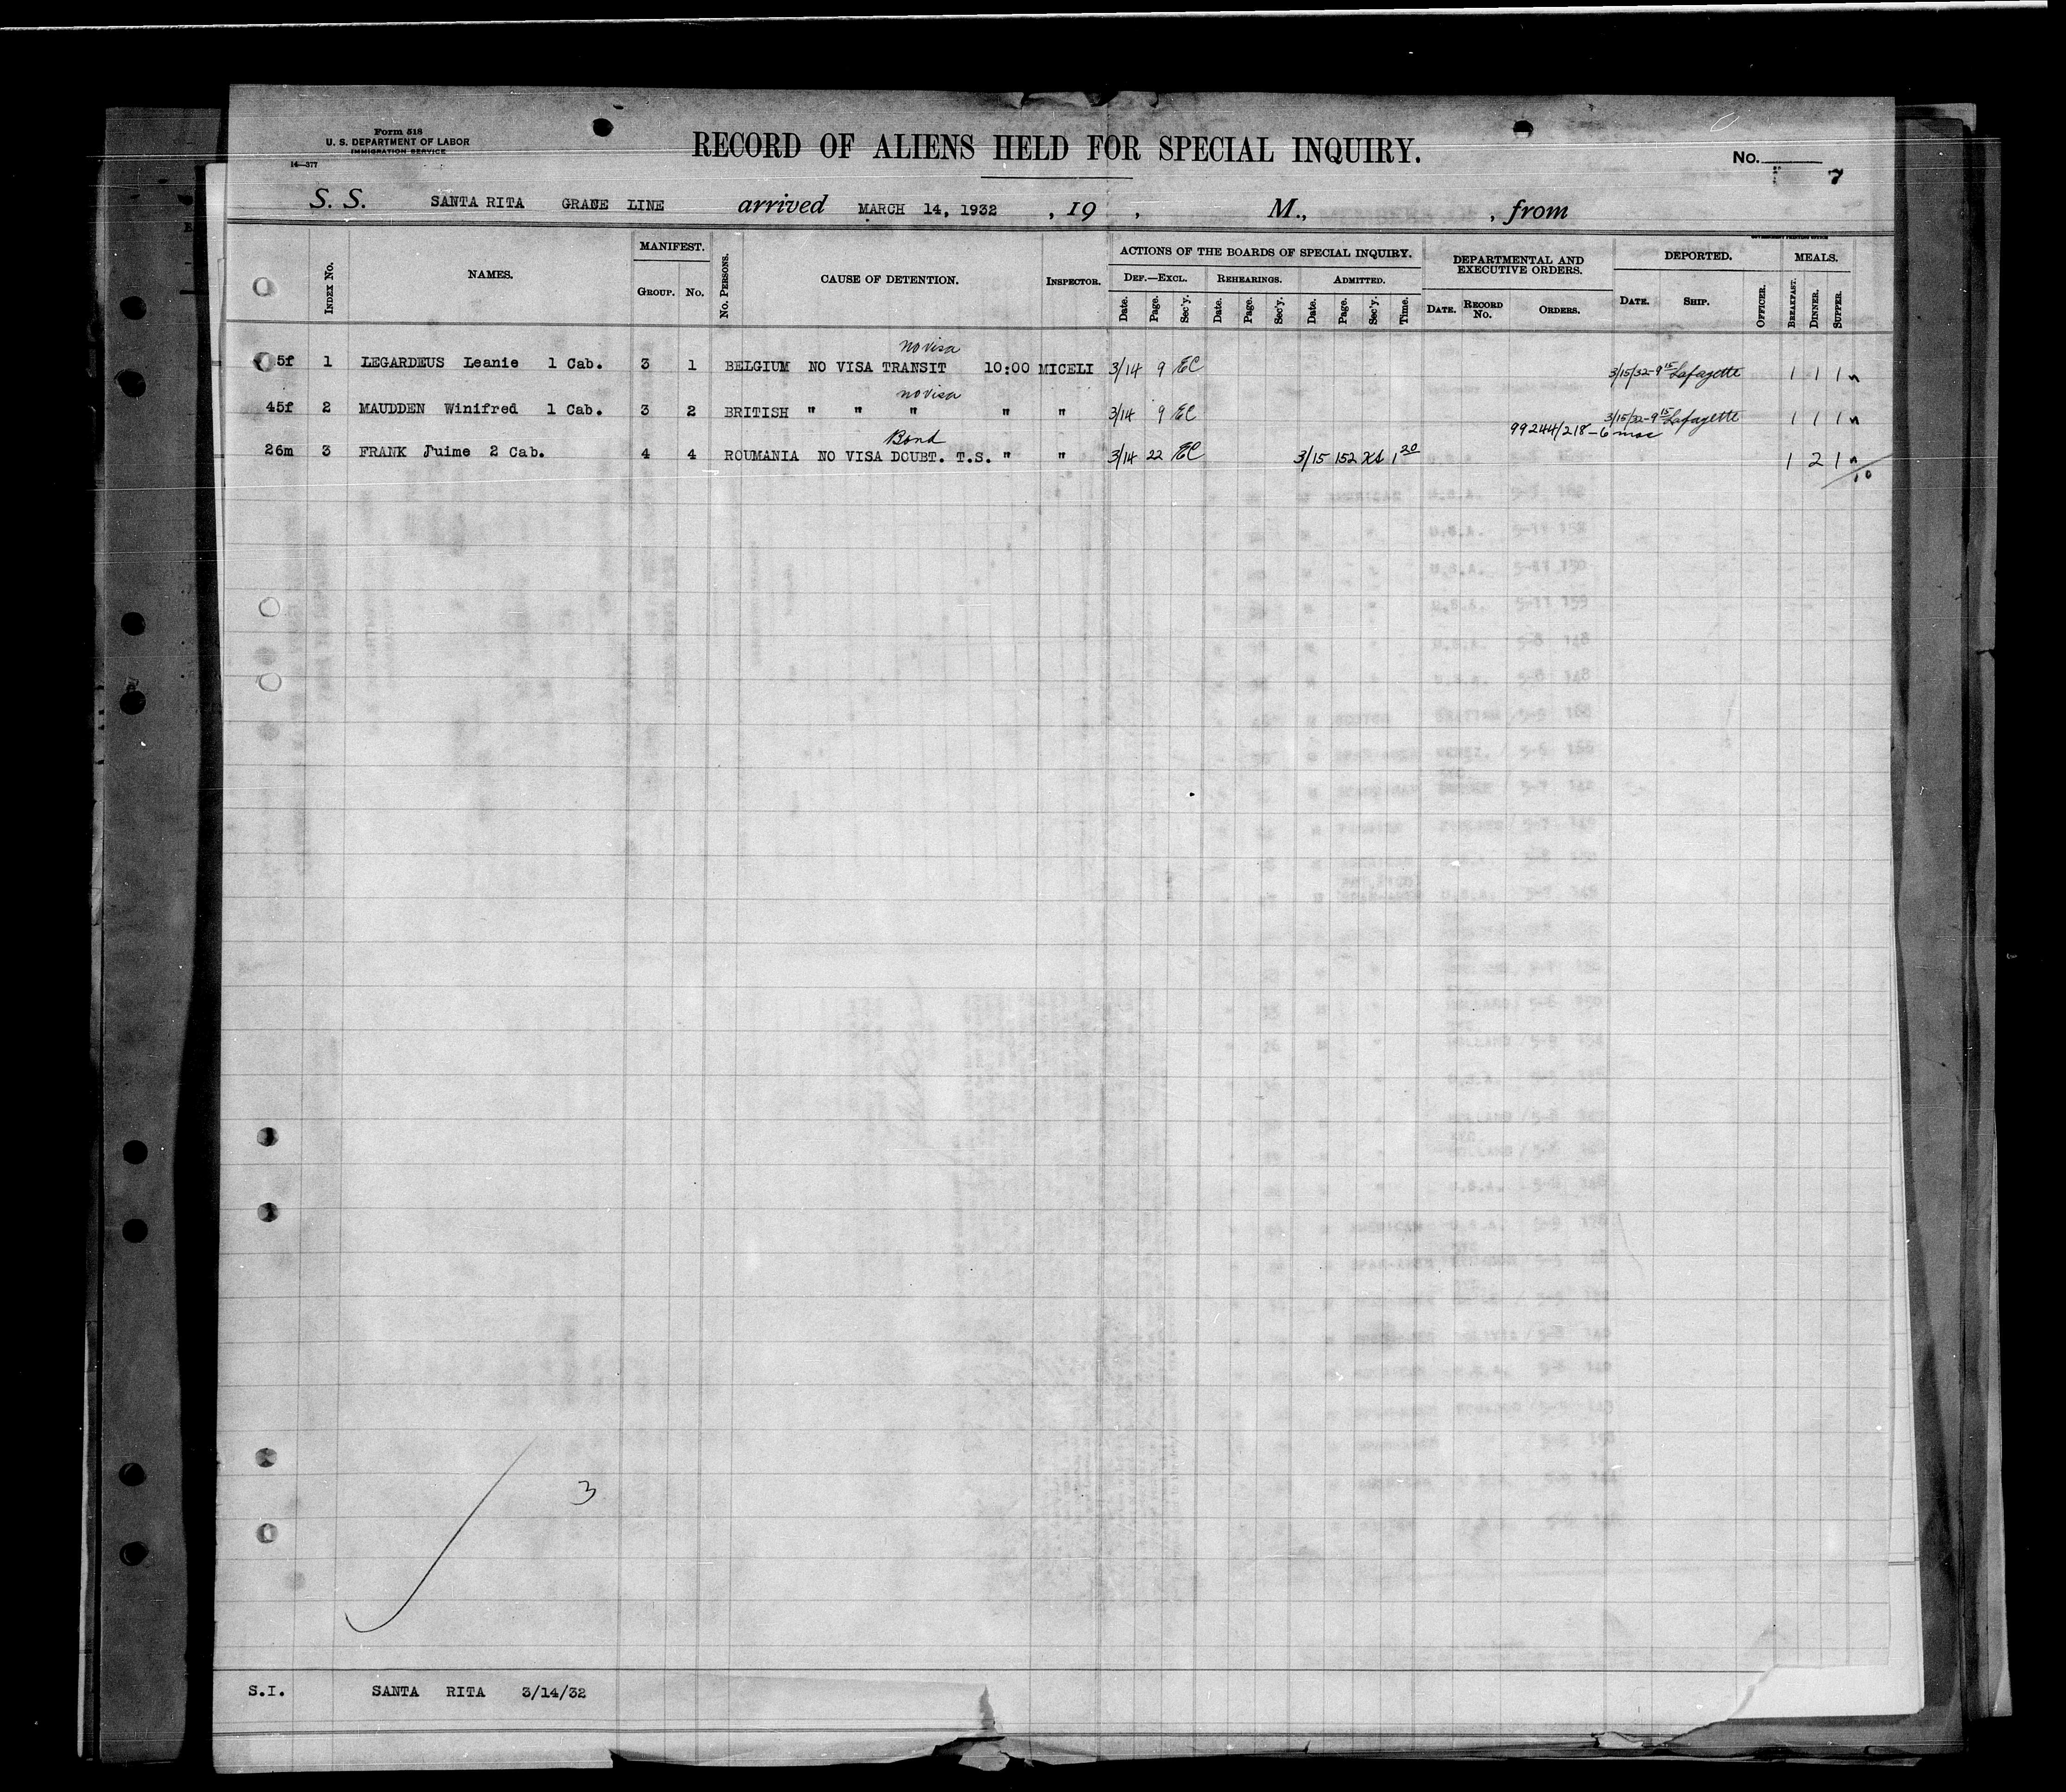 Form 518
U. S. DEPARTMENT OF LABOR
IMMIGRATION SERVICE
14—377
RECORD OF ALIENS HELD FOR SPECIAL INQUIRY.
No.
7
S. S. SANTA RITA GRANE LINE arrived MARCH 14, 1932 , 19 , M., , from
GOVERNMENT PRINTING OFFICE
INDEX No. NAMES. MANIFEST. No. PERSONS. CAUSE OF DETENTION. INSPECTOR. ACTIONS OF THE BOARDS OF SPECIAL INQUIRY. DEPARTMENTAL AND EXECUTIVE ORDERS. DEPORTED. OFFICER. MEALS.
GROUP. No. DEF.—EXCL. REHEARINGS. ADMITTED.
Date. Page. Sec'y. Date. Page. Sec'y. Date. Page. Sec'y. Time. DATE. RECORD No. ORDERS. DATE. SHIP. BREAKFAST. DINNER. SUPPER.
no visa
5f 1 LEGARDEUS Leanie 1 Cab. 3 1 BELGIUM NO VISA TRANSIT 10:00 MICELI 3/14 9 EC 3/15/32-9 15 Lafayette 1 1 1
no visa
45f 2 MAUDDEN Winifred 1 Cab. 3 2 BRITISH " " " " " 3/14 9 EC 3/15/32-9 15 Lafayette 1 1 1
Bond 99244/218-6 mos
26m 3 FRANK Juime 2 Cab. 4 4 ROUMANIA NO VISA DOUBT. T.S. " " 3/14 22 EC 3/15 152 1 20 1 2 1
10
3
S.I. SANTA RITA 3/14/32